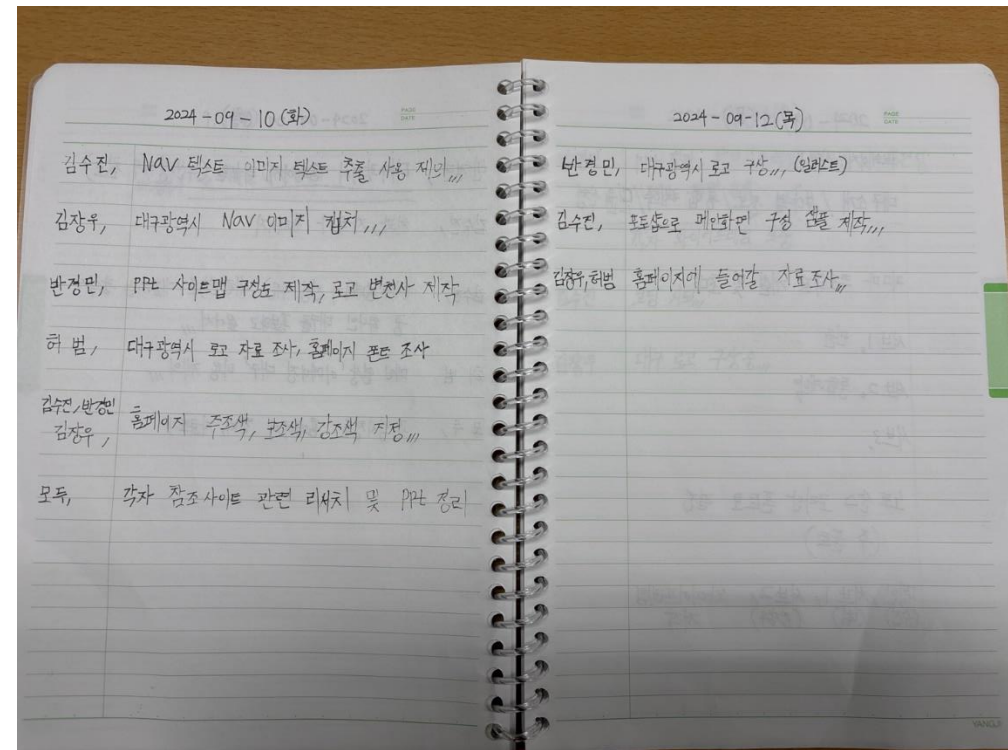 2024-09-10 (화)
PAGE
DATE
김수진, Nav 텍스트 이미지 텍스트 추출 사용 제의,,,
김장우, 대구광역시 Nav 이미지 캡처,,,
반경민, PPt 사이트맵 구성도 제작, 로고 변천사 제작
허범, 대구광역시 로고 자료 조사, 홈페이지 폰트 조사
김수진, 반경민
김장우, 홈페이지 주조색, 보조색, 강조색 지정,,,
모두, 각자 참조사이트 관련 리서치 및 PPt 정리
2024-09-12(목)
PAGE
DATE
반경민, 대구광역시 로고 구상,,, (일러스트)
김수진, 포토샵으로 메인화면 구성 샘플 제작,,,
김장우, 허범 홈페이지에 들어갈 자료조사,,,
YANGJI